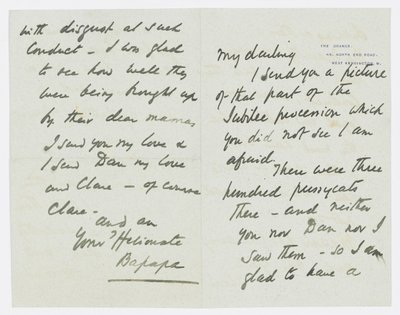 THE GRANGE,
49, NORTH END ROAD,
WEST KENSINGTON. W.
my darling
I send you a picture
of that part of the
Jubilee procession which
you did not see I am
afraid.
There were three
hundred pussycats
there – and neither
you nor Dan nor I
saw them – so I am
glad to have a
with disgust at such
conduct – I was glad
to see how well they
were being brought up
by their dear mamas
I send you my love &
I send Dan my love
and Clare – of course
Clare –
and am
Your
Bapapa